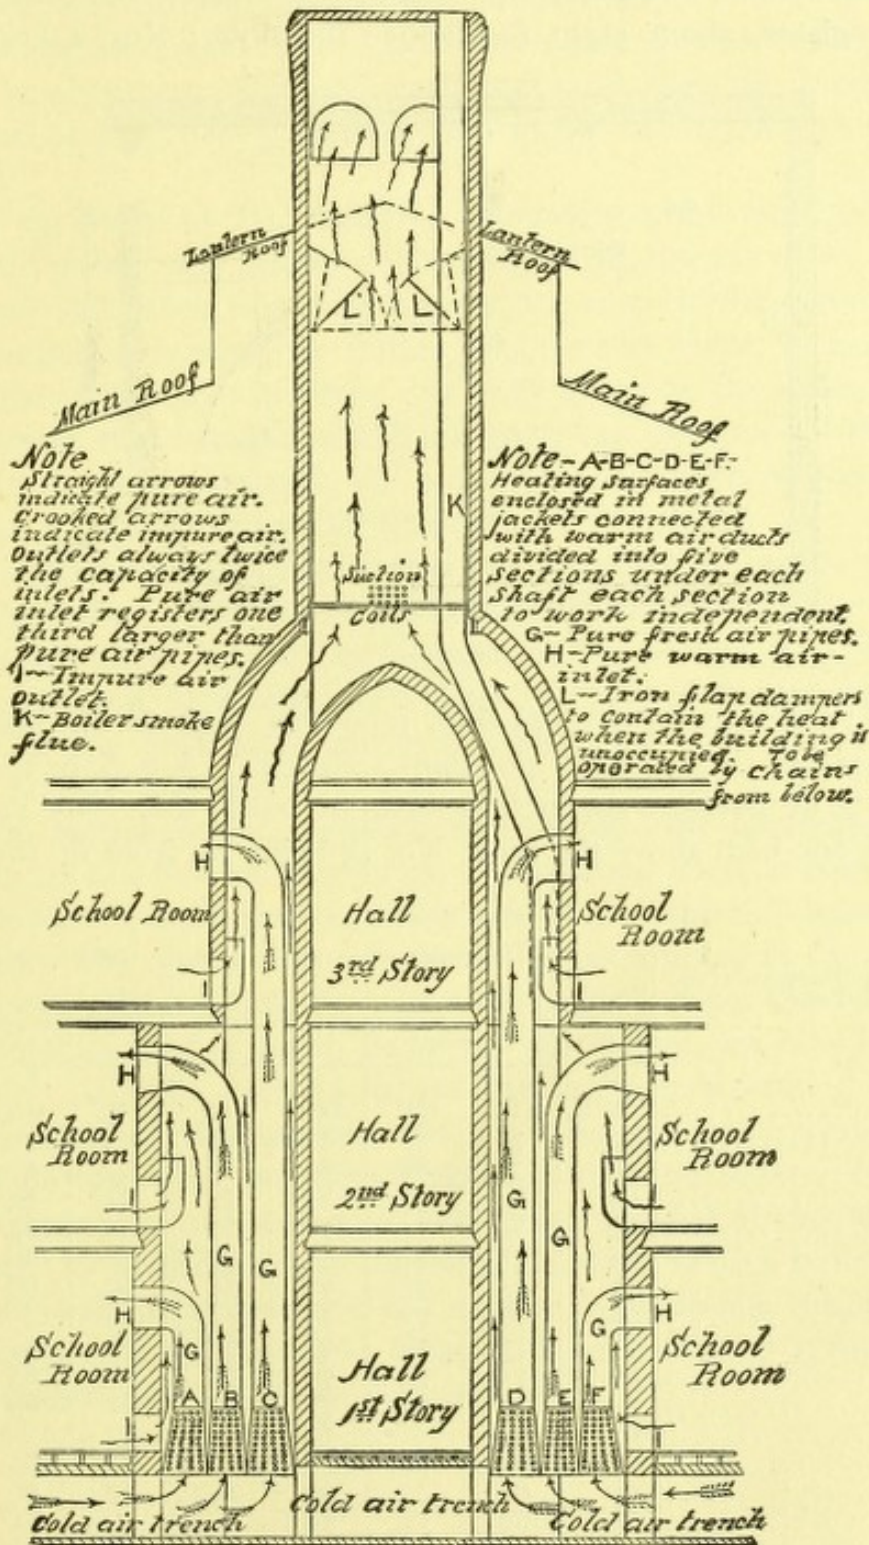 Lantern
Roof
Lantern
Roof
L L
Main Roof
Main Roof
Note
Straight arrows
indicate pure air.
Crooked arrows
indicate impure air.
Outlets always twice
the capacity of
inlets. Pure air
inlet registers one
third larger than
pure air pipes.
I-Impure air
outlet.
K-Boiler smoke
flue.
Note-A-B-C-D-E-F-
Heating surfaces
enclosed in metal
jackets connected
with warm air ducts
divided into five
sections under each
shaft each section
to work independent.
G-Pure fresh air pipes.
H-Pure warm air-
inlet.
L-Iron flap dampers
to contain the heat
when the building is
unoccupied. To be
operated by chains
from below.
K
Suction
Coils
H H
School Room
Hall
3rd Story
School
Room
I I
H H
School
Room
Hall
2nd Story
School
Room
I I
G G G G
H H
School
Room
Hall
1st Story
School
Room
G G
A B C D E F
I I
Cold air trench
Cold air trench
Cold air trench